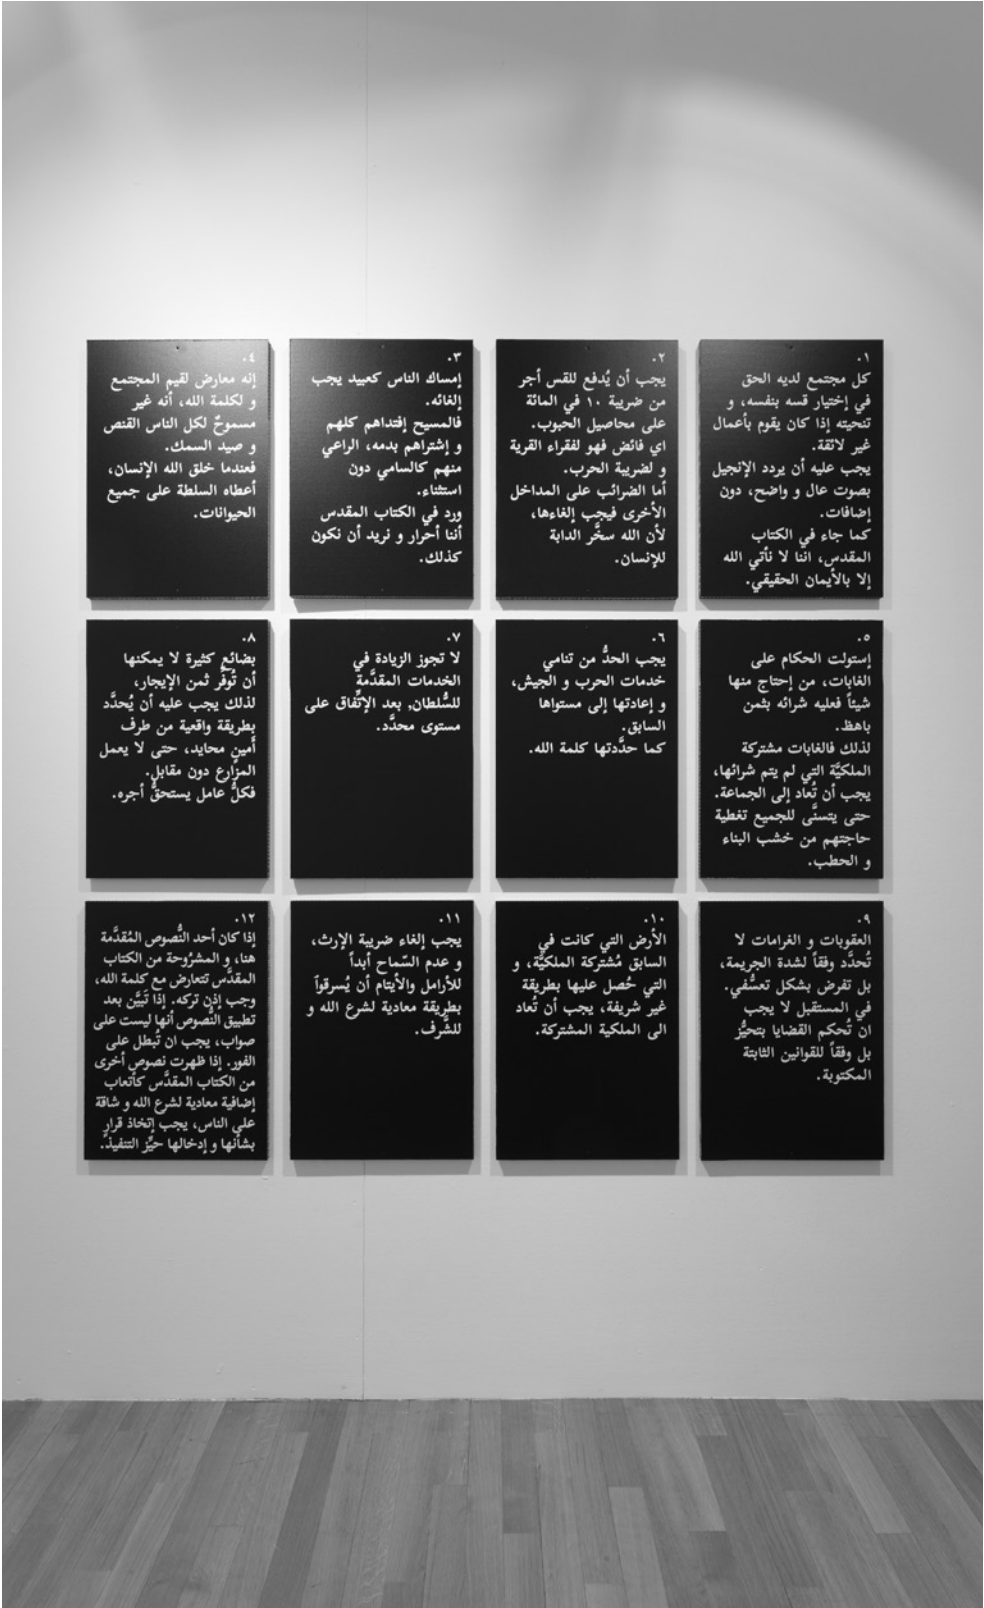 ٠١
كل مجتمع لديه الحق
في إختيار قسه بنفسه، و
تنحيته إذا كان يقوم بأعمال
غير لائقة.
يجب عليه أن يردد الإنجيل
بصوت عال و واضح، دون
إضافات.
كما جاء في الكتاب
المقدس، اننا لا نأتي الله
إلا بالأيمان الحقيقي.
٠٢
يجب أن يُدفع للقس أجر
من ضريبة ١٠ في المائة
على محاصيل الحبوب.
اي فائض فهو لفقراء القرية
و لضريبة الحرب.
أما الضرائب على المداخل
الأخرى فيجب إلغاءها،
لأن الله سخَّر الدابة
للإنسان.
٠٣
إمساك الناس كعبيد يجب
إلغائه.
فالمسيح إفتداهم كلهم
و إشتراهم بدمه، الراعي
منهم كالسامي دون
استثناء.
ورد في الكتاب المقدس
أننا أحرار و نريد أن نكون
كذلك.
٠٤
إنه معارض لقيم المجتمع
و لكلمة الله، أنه غير
مسموحٌ لكل الناس القنص
و صيد السمك.
فعندما خلق الله الإنسان،
أعطاه السلطة على جميع
الحيوانات.
٠٥
إستولت الحكام على
الغابات، من إحتاج منها
شيئاً فعليه شرائه بثمن
باهظ.
لذلك فالغابات مشتركة
الملكيَّة التي لم يتم شرائها،
يجب أن تُعاد إلى الجماعة.
حتى يتسنَّى للجميع تغطية
حاجتهم من خشب البناء
و الحطب.
٠٦
يجب الحدُّ من تنامي
خدمات الحرب و الجيش،
و إعادتها إلى مستواها
السابق.
كما حدَّدتها كلمة الله.
٠٧
لا تجوز الزيادة في
الخدمات المقدَّمة
للسُّلطان, بعد الإتِّفاق على
مستوى محدَّد.
٠٨
بضائع كثيرة لا يمكنها
أن تُوفِّر ثمن الإيجار،
لذلك يجب عليه أن يُحدَّد
بطريقة واقعية من طرف
أمينٍ محايد، حتى لا يعمل
المزارع دون مقابلٍ.
فكلُّ عامل يستحقُّ أجره.
٠٩
العقوبات و الغرامات لا
تُحدَّد وفقاً لشدة الجريمة،
بل تفرض بشكل تعسُّفي.
في المستقبل لا يجب
ان تُحكم القضايا بتحيُّز
بل وفقاً للقوانين الثابتة
المكتوبة.
٠١٠
الأرض التي كانت في
السابق مُشتركة الملكيَّة، و
التي حُصل عليها بطريقة
غير شريفة، يجب أن تُعاد
الى الملكية المشتركة.
٠١١
يجب إلغاء ضريبة الإرث،
و عدم السّماح أبداً
للأرامل والأيتام أن يُسرقوا
بطريقة معادية لشرع الله و
للشَّرف.
٠١٢
إذا كان أحد النُّصوص المُقدَّمة
هنا، و المشرُوحة من الكتاب
المقدَّس تتعارض مع كلمة الله،
وجب إذن تركه. إذا تَبيَّن بعد
تطبيق النُّصوص أنها ليست على
صواب، يجب ان تُبطل على
الفور. إذا ظهرت نصوص أخرى
من الكتاب المقدَّس كأتعاب
إضافية معادية لشرع الله و شاقة
على الناس، يجب إتخاذ قرارٍ
بشأنها و إدخالها حيِّز التنفيذ.